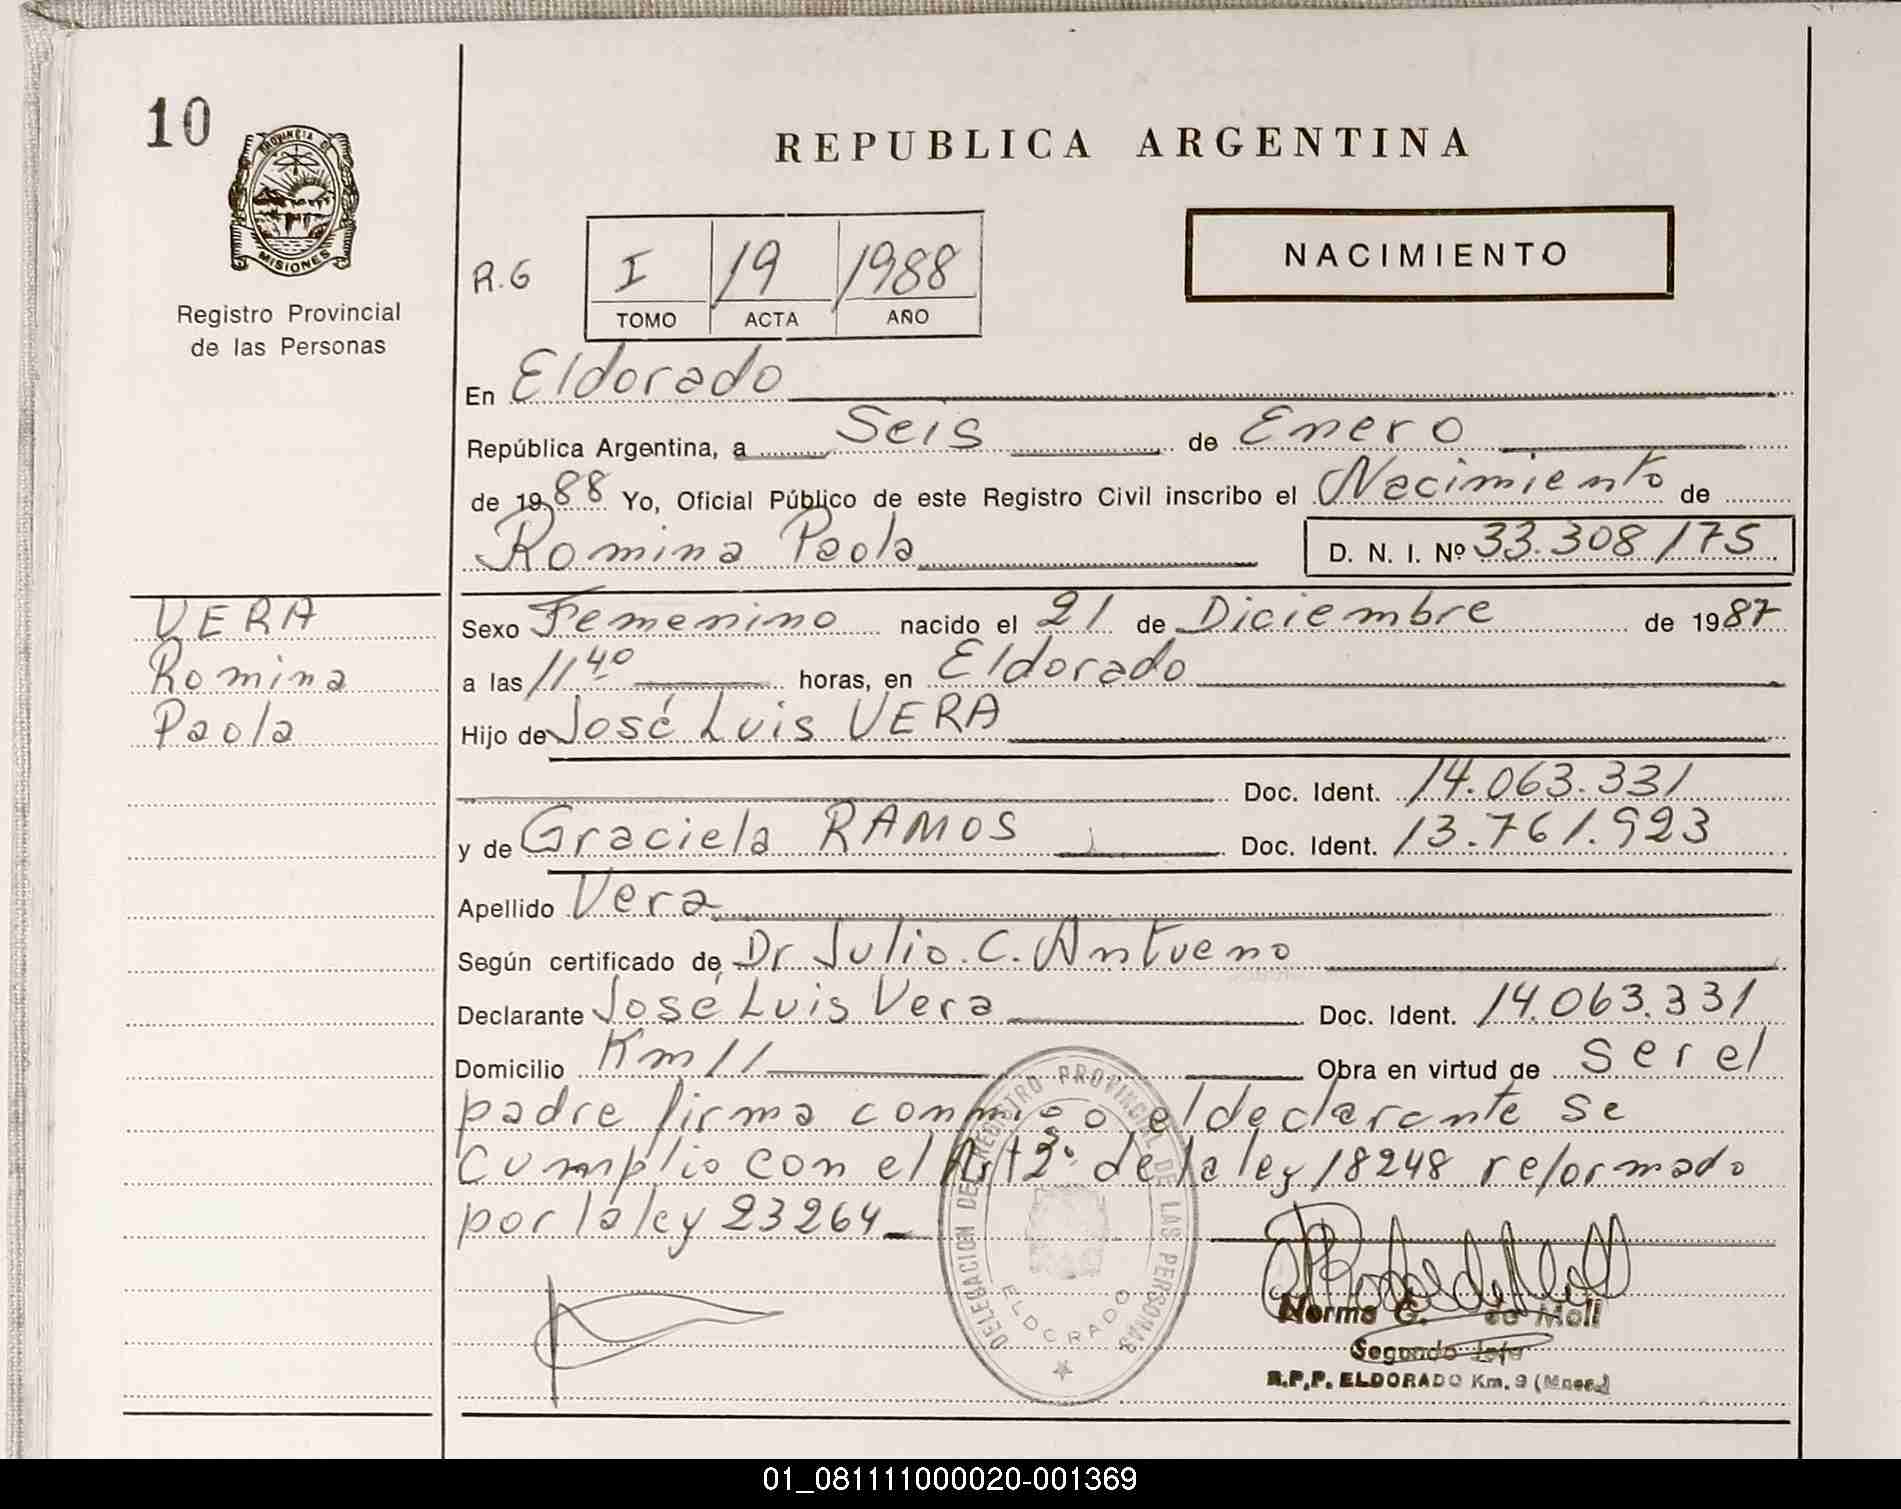 10
PROVINCIA DE
MISIONES
Registro Provincial
de las Personas
REPUBLICA ARGENTINA
NACIMIENTO
R.G I 19 1988
TOMO ACTA AÑO
En Eldorado
República Argentina, a Seis de Enero
de 1988 Yo, Oficial Público de este Registro Civil inscribo el Nacimiento de
Romina Paola D. N. I. Nº 33.308175
VERA
Romina
Paola
Sexo Femenino nacido el 21 de Diciembre de 1987
a las 11 40 horas, en Eldorado
Hijo de José Luis VERA
Doc. Ident. 14.063.331
y de Graciela RAMOS Doc. Ident. 13.761.923
Apellido Vera
Según certificado de Dr Julio. C. Antueno
Declarante José Luis Vera Doc. Ident. 14.063.331
Domicilio Km 11 Obra en virtud de ser el
padre firma conmigo el declarante se
cumplio con el Art 2º de la ley 18248 reformado
por la ley 23264
DELEGACION DEL REGISTRO PROVINCIAL DE LAS PERSONAS
ELDORADO
Norma G. de Moll
Segundo Jefe
R.P.P. ELDORADO Km. 9 (Mnes.)
01_081111000020-001369